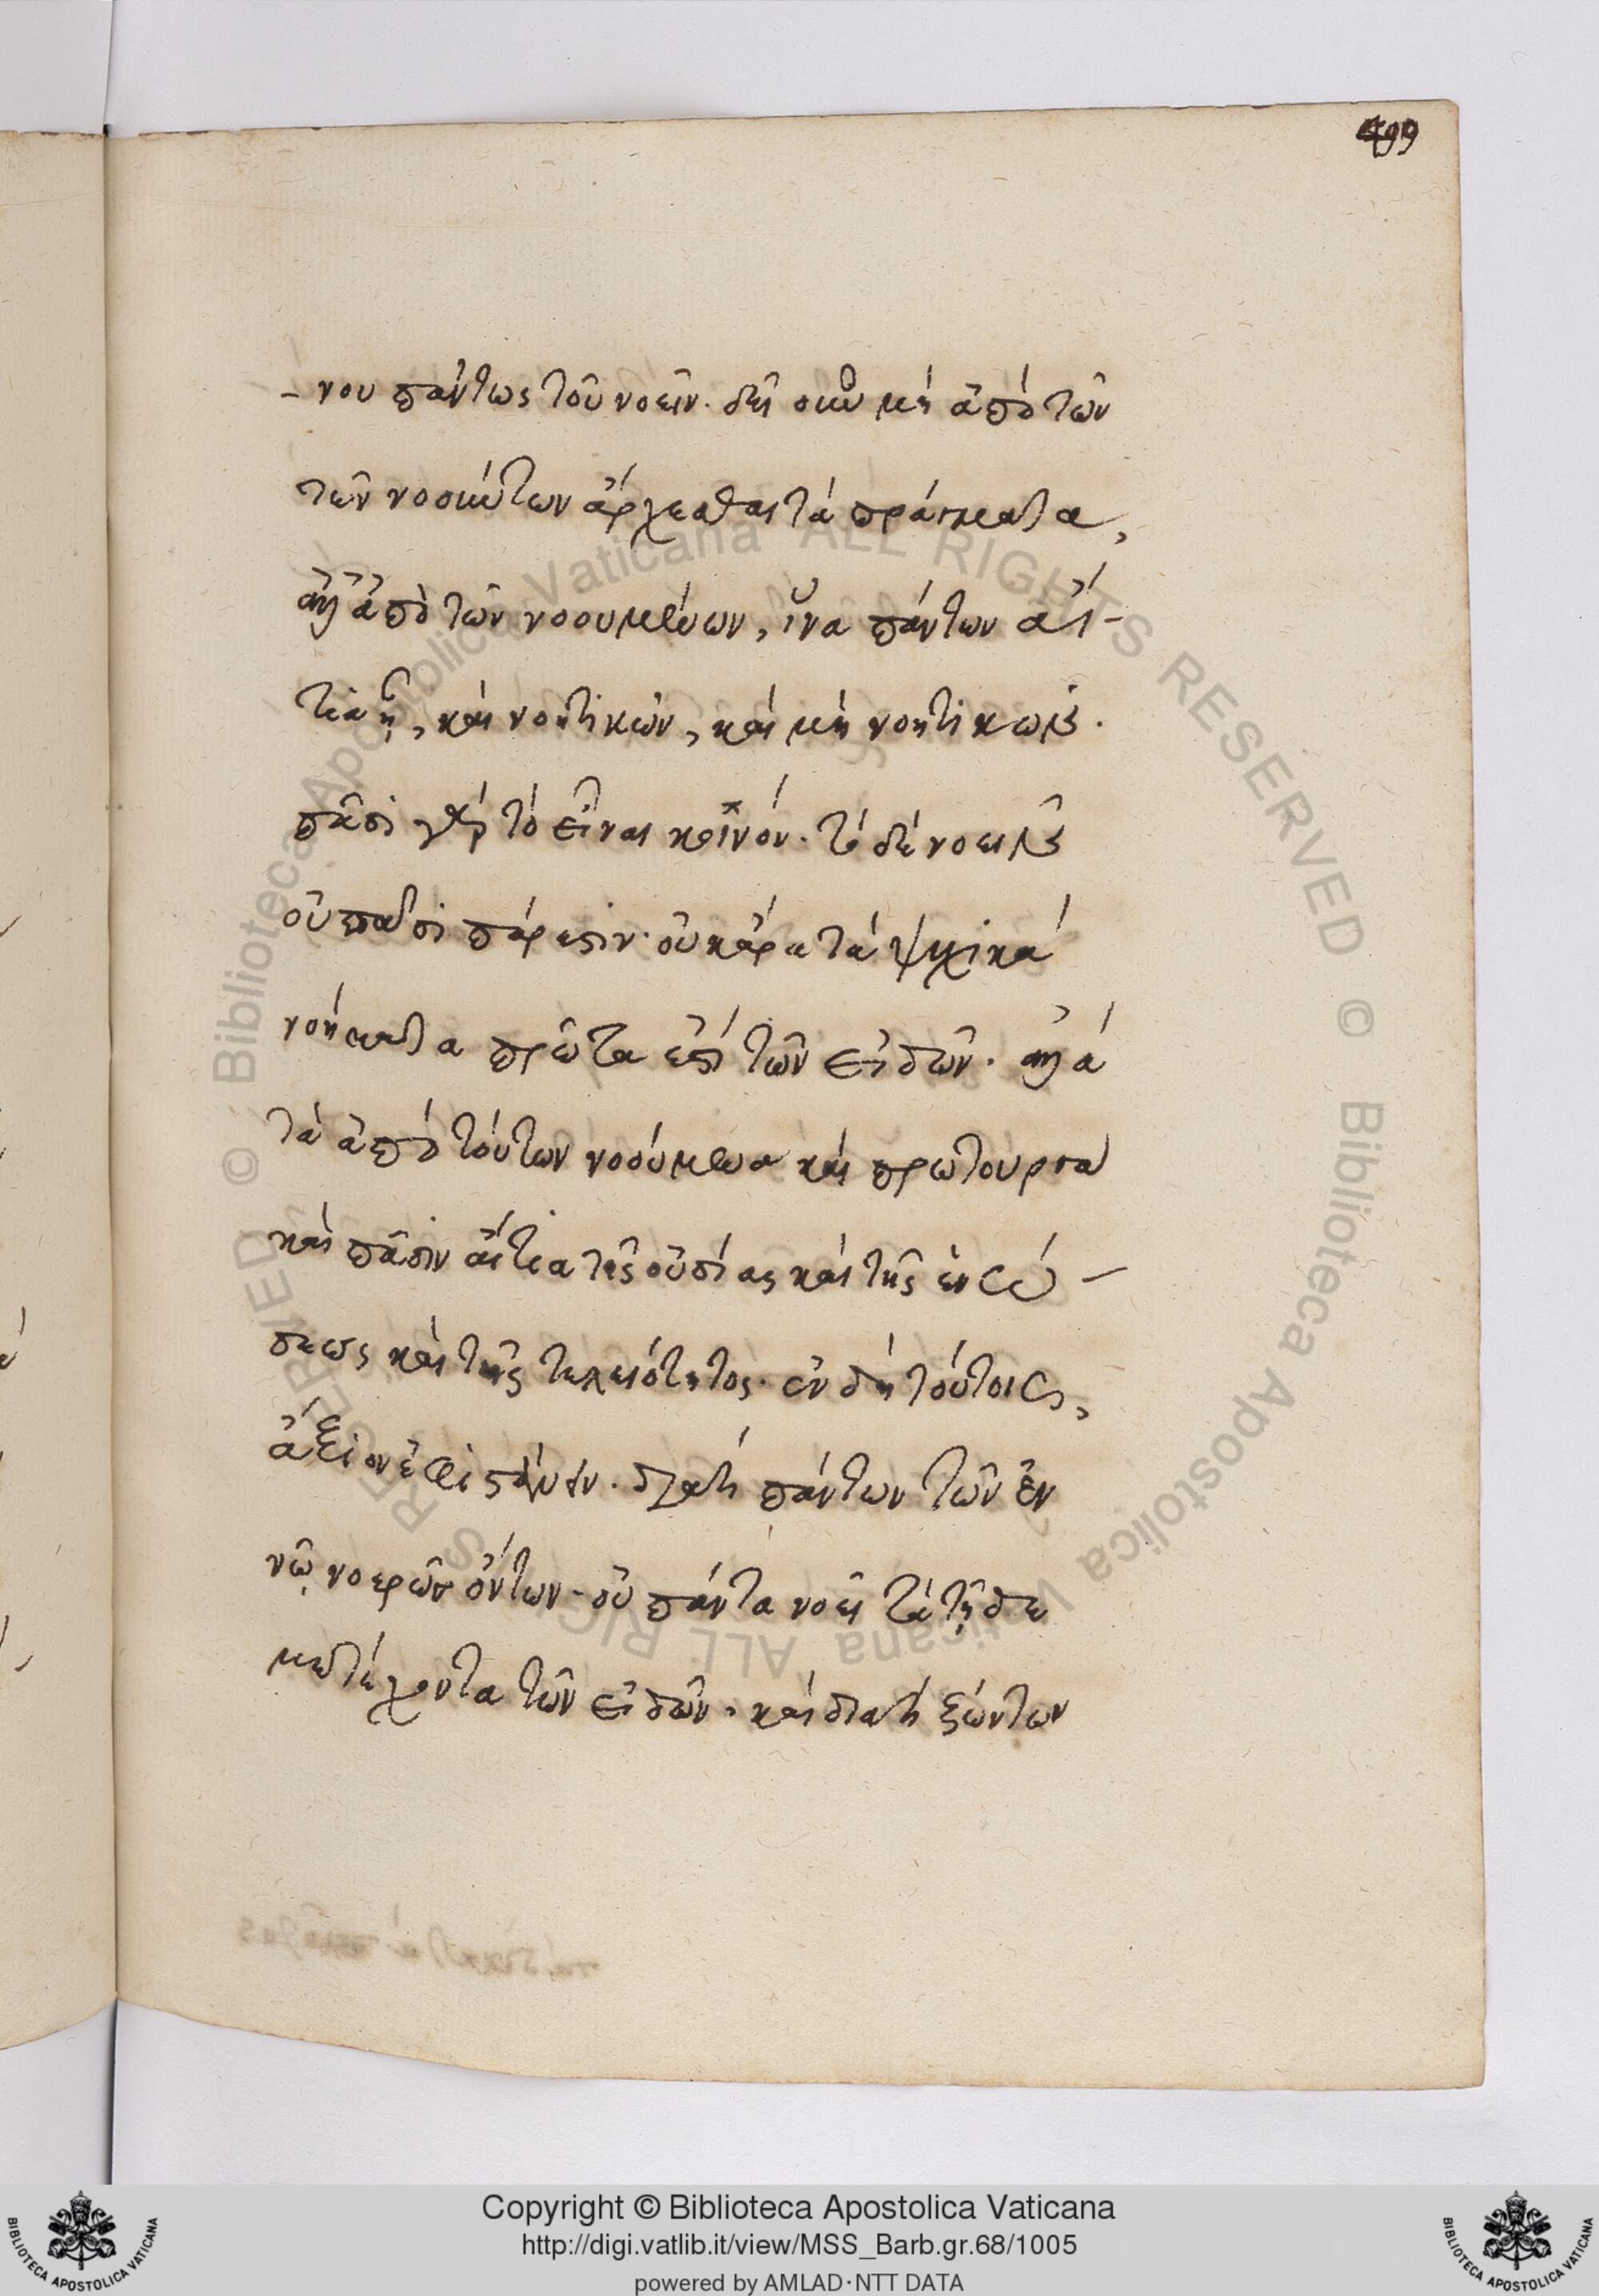 499
-νου πάντως τοῦ νοεῖν. δεῖ οὖν μὴ ἀπὸ τῶν
τῶν νοούντων ἄρχεσθαι τὰ πράγματα,
ἀλλ' ἀπὸ τῶν νοουμένων, ἵνα πάντων αἴ-
τια ᾖ, καὶ νοητικῶν, καὶ μὴ νοητικῶν.
πᾶσι γὰρ τὸ εἶναι κοινόν. τὸ δὲ νοεῖν
οὐ πᾶσι πάρεστιν. οὐκ ἄρα τὰ ψυχικὰ
νοήματα πρῶτα ἐπὶ τῶν εἰδῶν. ἀλλὰ
τὰ ἀπὸ τούτων νοούμενα καὶ πρωτουργὰ
καὶ πᾶσιν αἴτια τῆς οὐσίας καὶ τῆς ἑνώ-
σεως καὶ τῆς τελειότητος. ἐν δὴ τούτοις,
ἄξιον ἐφιστάνειν. διατί πάντων τῶν ἐν
νῷ νοερῶν ὄντων. οὐ πάντα νοεῖ τὰ τῇδε
μετέχοντα τῶν εἰδῶν. καὶ διατί ζώντων
Copyright © Biblioteca Apostolica Vaticana
http://digi.vatlib.it/view/MSS_Barb.gr.68/1005
powered by AMLAD·NTT DATA
BIBLIOTECA APOSTOLICA VATICANA
BIBLIOTECA APOSTOLICA VATICANA
© Biblioteca Apostolica Vaticana ALL RIGHTS RESERVED
© Biblioteca Apostolica Vaticana ALL RIGHTS RESERVED